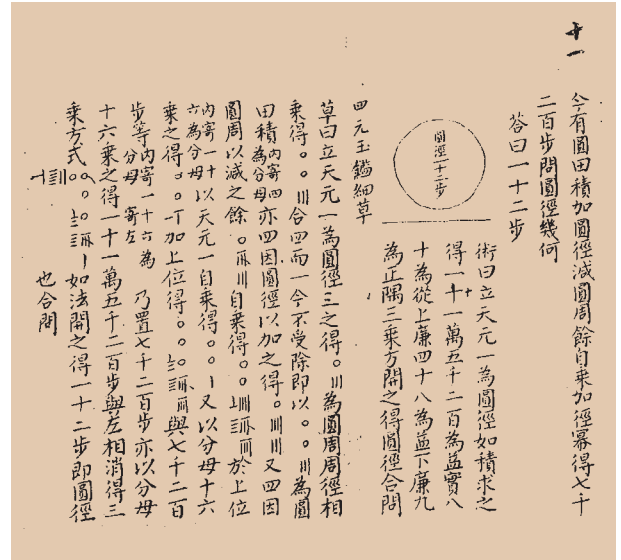 十一
今有圓田積加圓徑減圓周餘自乘加徑冪得七千
二百步問圓徑幾何
荅曰一十二步
圓徑一十二步
術曰立天元一為圓徑如積求之
得一十一萬五千二百為益實八
十為從上廉四十八為益下廉九
為正隅三乘方開之得圓徑合問
四元玉鑑細草
草曰立天元一為圓徑三之得。|||為圓周周徑相
乘得。。|||合四而一今不受除即以。。|||為圓
田積內寄四為分母亦四因圓徑以加之得。||||　|||又四因
圓周以減之餘。自乘得。。於上位
內寄一十六為分母以天元一自乘得。。|又以分母十六
乘之得。。加上位得。。與七千二百
步等內寄一十六為分母　寄左　乃置七千二百步亦以分母
十六乘之得一十一萬五千二百步與左相消得三
乘方式如法開之得一十二步即圓徑
也合問